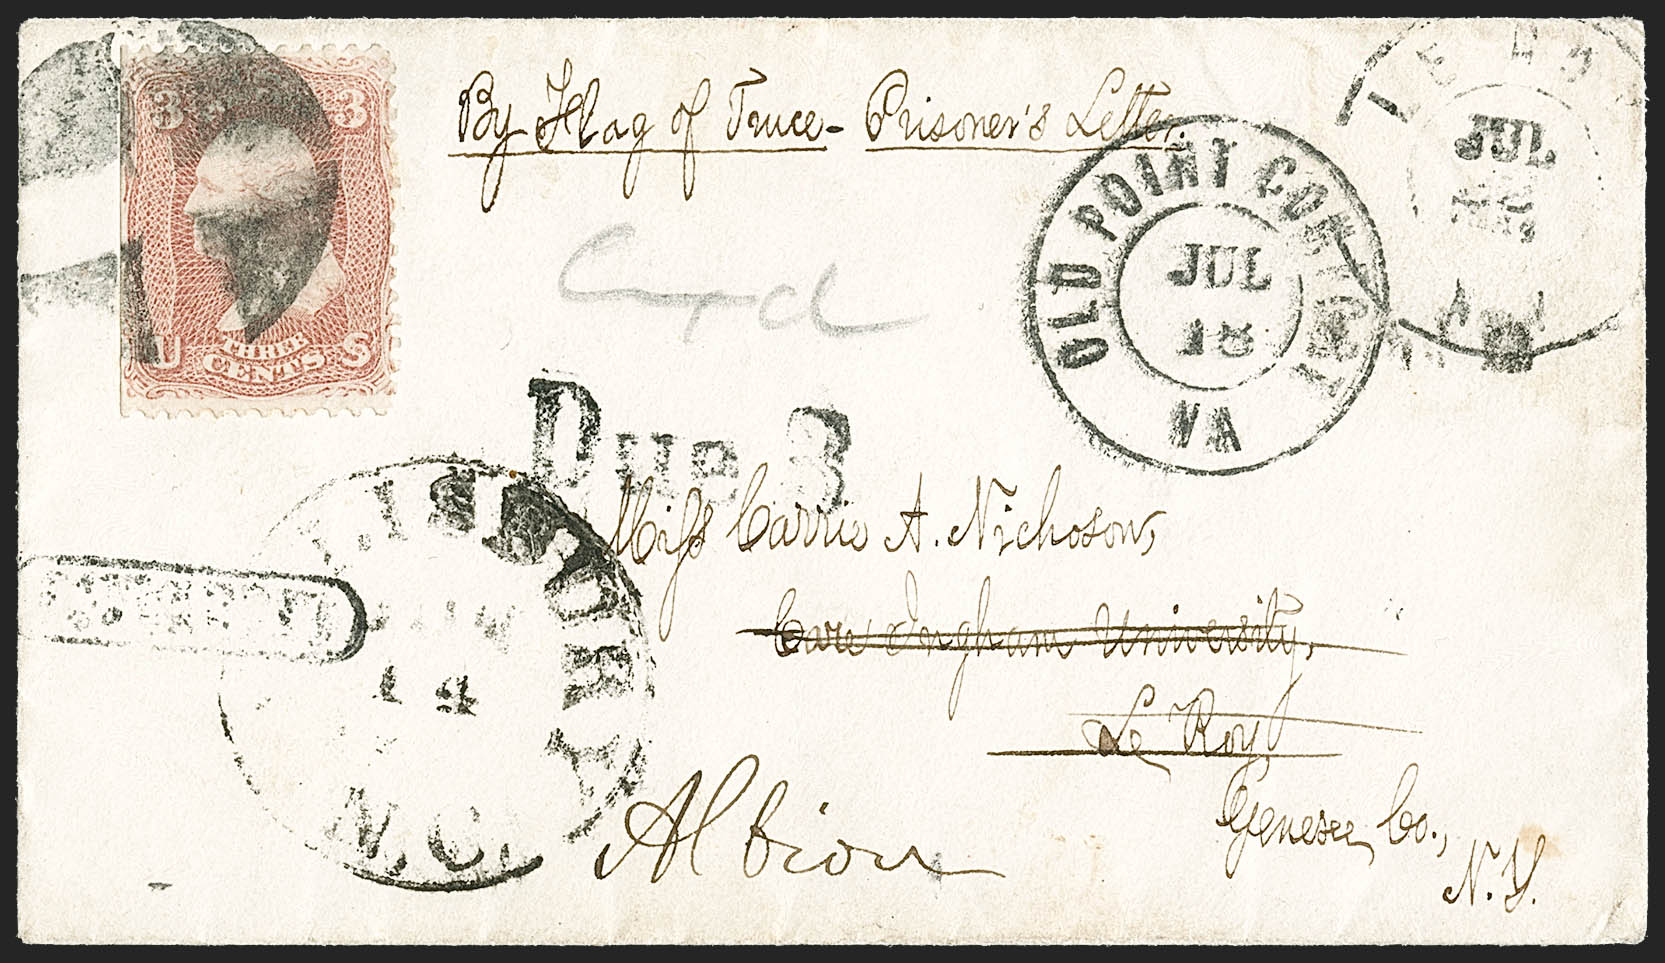 3 3
U S
THREE
CENTS
By Flag of Truce - Prisoner's Letter.
OLD POINT COMFORT
JUL
18
VA
JUL
Due 3
Miss Carrie A. Nichoson,
Care Ingham University,
Le Roy,
Genesee Co.,
N.Y.
Albion
14
N.C.